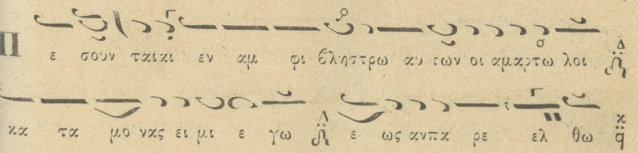 Π ε σουν ταικι εν αμ φι βληστρω αυ των οι αμαρτω λοι
κα τα μο νας ει μι ε γω ε ως αν πα ρε ελ θω